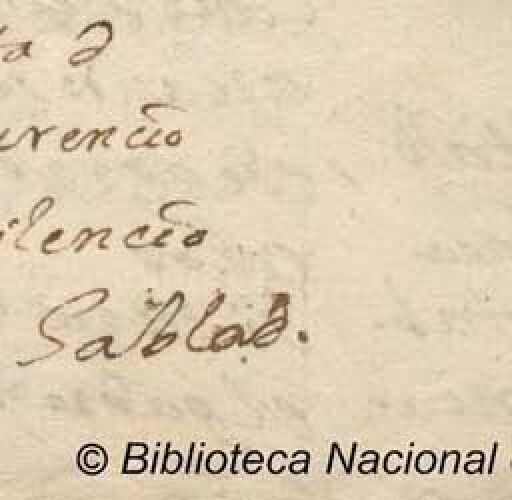 ta d
urencio
ilencio
Sablad.
© Biblioteca Nacional